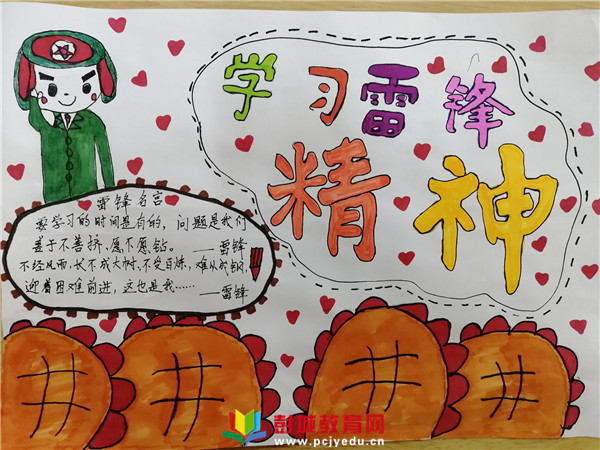 学习雷锋
精神
雷锋名言
要学习的时间是有的，问题是我们
善于不善挤，愿不愿钻。——雷锋
不经风雨，长不成大树，不受百炼，难以成钢，
迎着困难前进，这也是我……
——雷锋
彭城教育网
www.pcjyedu.cn